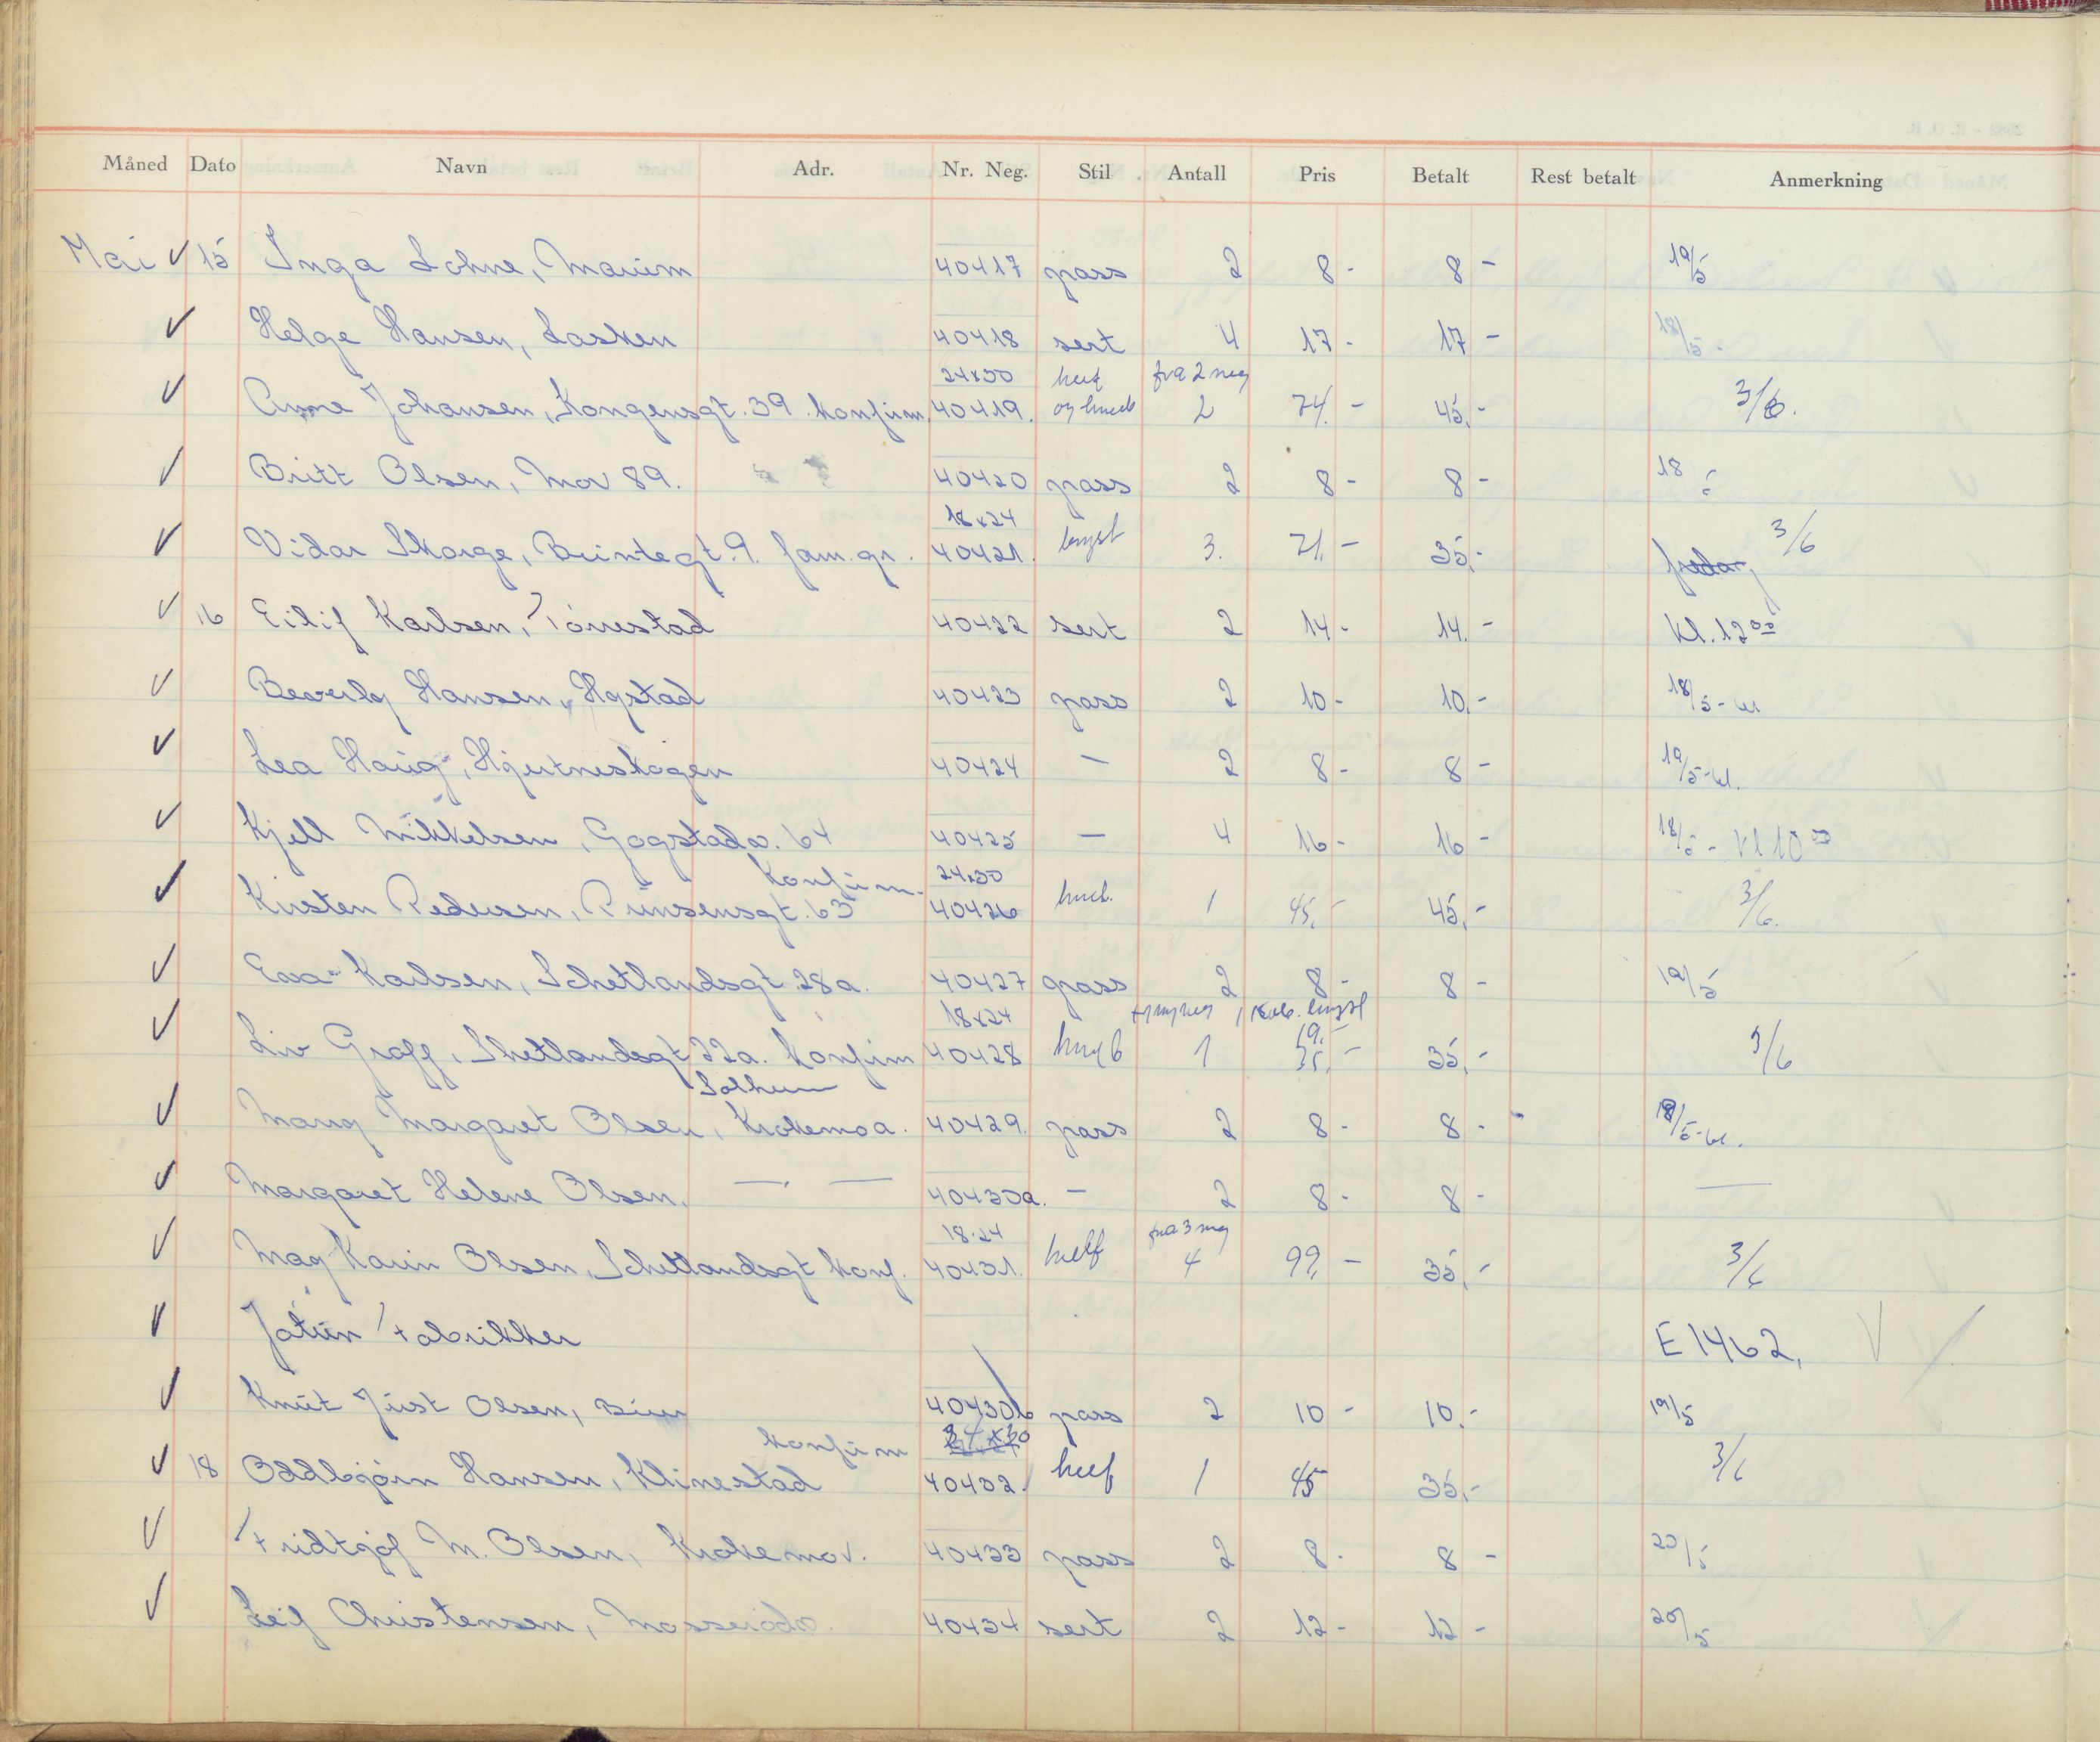 Måned Dato Navn Adr. Nr. Neg. Stil Antall Pris Betalt Rest betalt Anmerkning
Mai ✓ 15 Inga Lohne, 40417 pass 2 8- 8- 19/5
✓ Helge Hansen, Lasken 40418 sert 4 17- 17- 18/5-
24x30 fra 2 neg
✓ Anne Johansen, Kongensgt. 39. konfirm. 40419. 2 74.- 45.- 3/6.
✓ Britt Olsen, Mov 89. 40420 pass 2 8- 8- 18
18x24
✓ Vidar Skorge, Bruntegt. 9. fam. gr. 40421. bryst 3. 71.- 35.- fredag 3/6
✓ 16 Eilif Karlsen, Tønnestad 40422 sert 2 14- 14.- Kl. 12 00
✓ Beverly Hansen, Hystad 40423 pass 2 10- 10.- 18/5-kl
✓ Lea Haug, Hjertneskogen 40424 — 2 8- 8- 19/5-kl.
✓ Kjell Mikkelsen, Gogstadv. 64 40425 — 4 16- 16- 18/5- Kl 10 00
konfirm. 24x30
✓ Kirsten Pedersen, Prinsensgt. 63 40426 1 45.- 45.- 3/6.
✓ Eva Karlsen, Schetlandsgt. 28a. 40427 pass 2 8- 8- 19/5
18x24 bryst
19.-
✓ Liv Graff, Shetlandsgt 22a. konfirm 40428 1 35.- 35.- 3/6
Solhum
✓ Mary Margaret Olsen, Krokemoa. 40429. pass 2 8- 8- 18/5-kl.
✓ Margaret Helene Olsen, — — 40430a. - 2 8- 8- —
18-24 fra 3 neg
✓ May Karin Olsen, Schetlandsgt konf. 40431. 4 99,- 35,- 3/6
✓ Jotun Fabrikker E 1462. V /
✓ Knut Just Olsen, 40430b pass 2 10- 10.- 19/5
konfirm 24x30
✓ 18 Oddbjørn Hansen, Klinestad 40432. 1 45 35.- 3/6
✓ Fridtjof M. Olsen, Krokemov. 40433 pass 2 8- 8- 20/5
✓ Leif Christensen, Mosserødv. 40434 sert 2 12- 12- 20/5